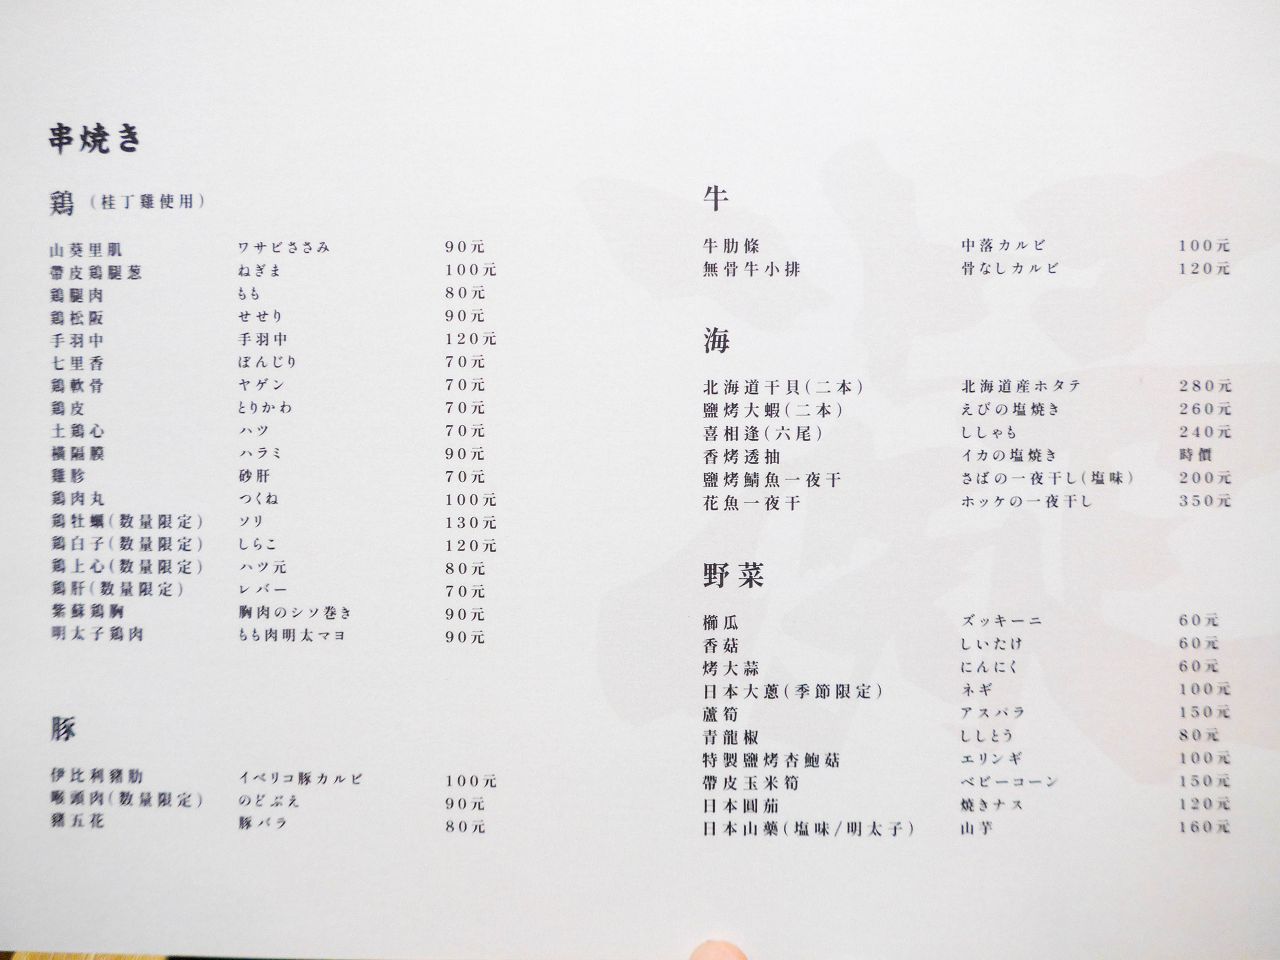 串焼き
鶏 (桂丁雞使用)
山葵里肌 ワサビささみ 90元
帶皮鶏腿葱 ねぎま 100元
鶏腿肉 もも 80元
鶏松阪 せせり 90元
手羽中 手羽中 120元
七里香 ぼんじり 70元
鶏軟骨 ヤゲン 70元
鶏皮 とりかわ 70元
土鶏心 ハツ 70元
橫隔膜 ハラミ 90元
雞胗 砂肝 70元
鶏肉丸 つくね 100元
鶏牡蠣(数量限定) ソリ 130元
鶏白子(数量限定) しらこ 120元
鶏上心(数量限定) ハツ元 80元
鶏肝(数量限定) レバー 70元
紫蘇鶏胸 胸肉のシソ巻き 90元
明太子鶏肉 もも肉明太マヨ 90元
豚
伊比利豬肋 イベリコ豚カルビ 100元
喉頭肉(数量限定) のどぶえ 90元
豬五花 豚バラ 80元
牛
牛肋條 中落カルビ 100元
無骨牛小排 骨なしカルビ 120元
海
北海道干貝(二本) 北海道産ホタテ 280元
鹽烤大蝦(二本) えびの塩焼き 260元
喜相逢(六尾) ししゃも 240元
香烤透抽 イカの塩焼き 時價
鹽烤鯖魚一夜干 さばの一夜干し(塩味) 200元
花魚一夜干 ホッケの一夜干し 350元
野菜
櫛瓜 ズッキーニ 60元
香菇 しいたけ 60元
烤大蒜 にんにく 60元
日本大蔥(季節限定) ネギ 100元
蘆筍 アスパラ 150元
青龍椒 ししとう 80元
特製鹽烤杏鮑菇 エリンギ 100元
帶皮玉米筍 ベビーコーン 150元
日本圓茄 焼きナス 120元
日本山藥(塩味/明太子) 山芋 160元